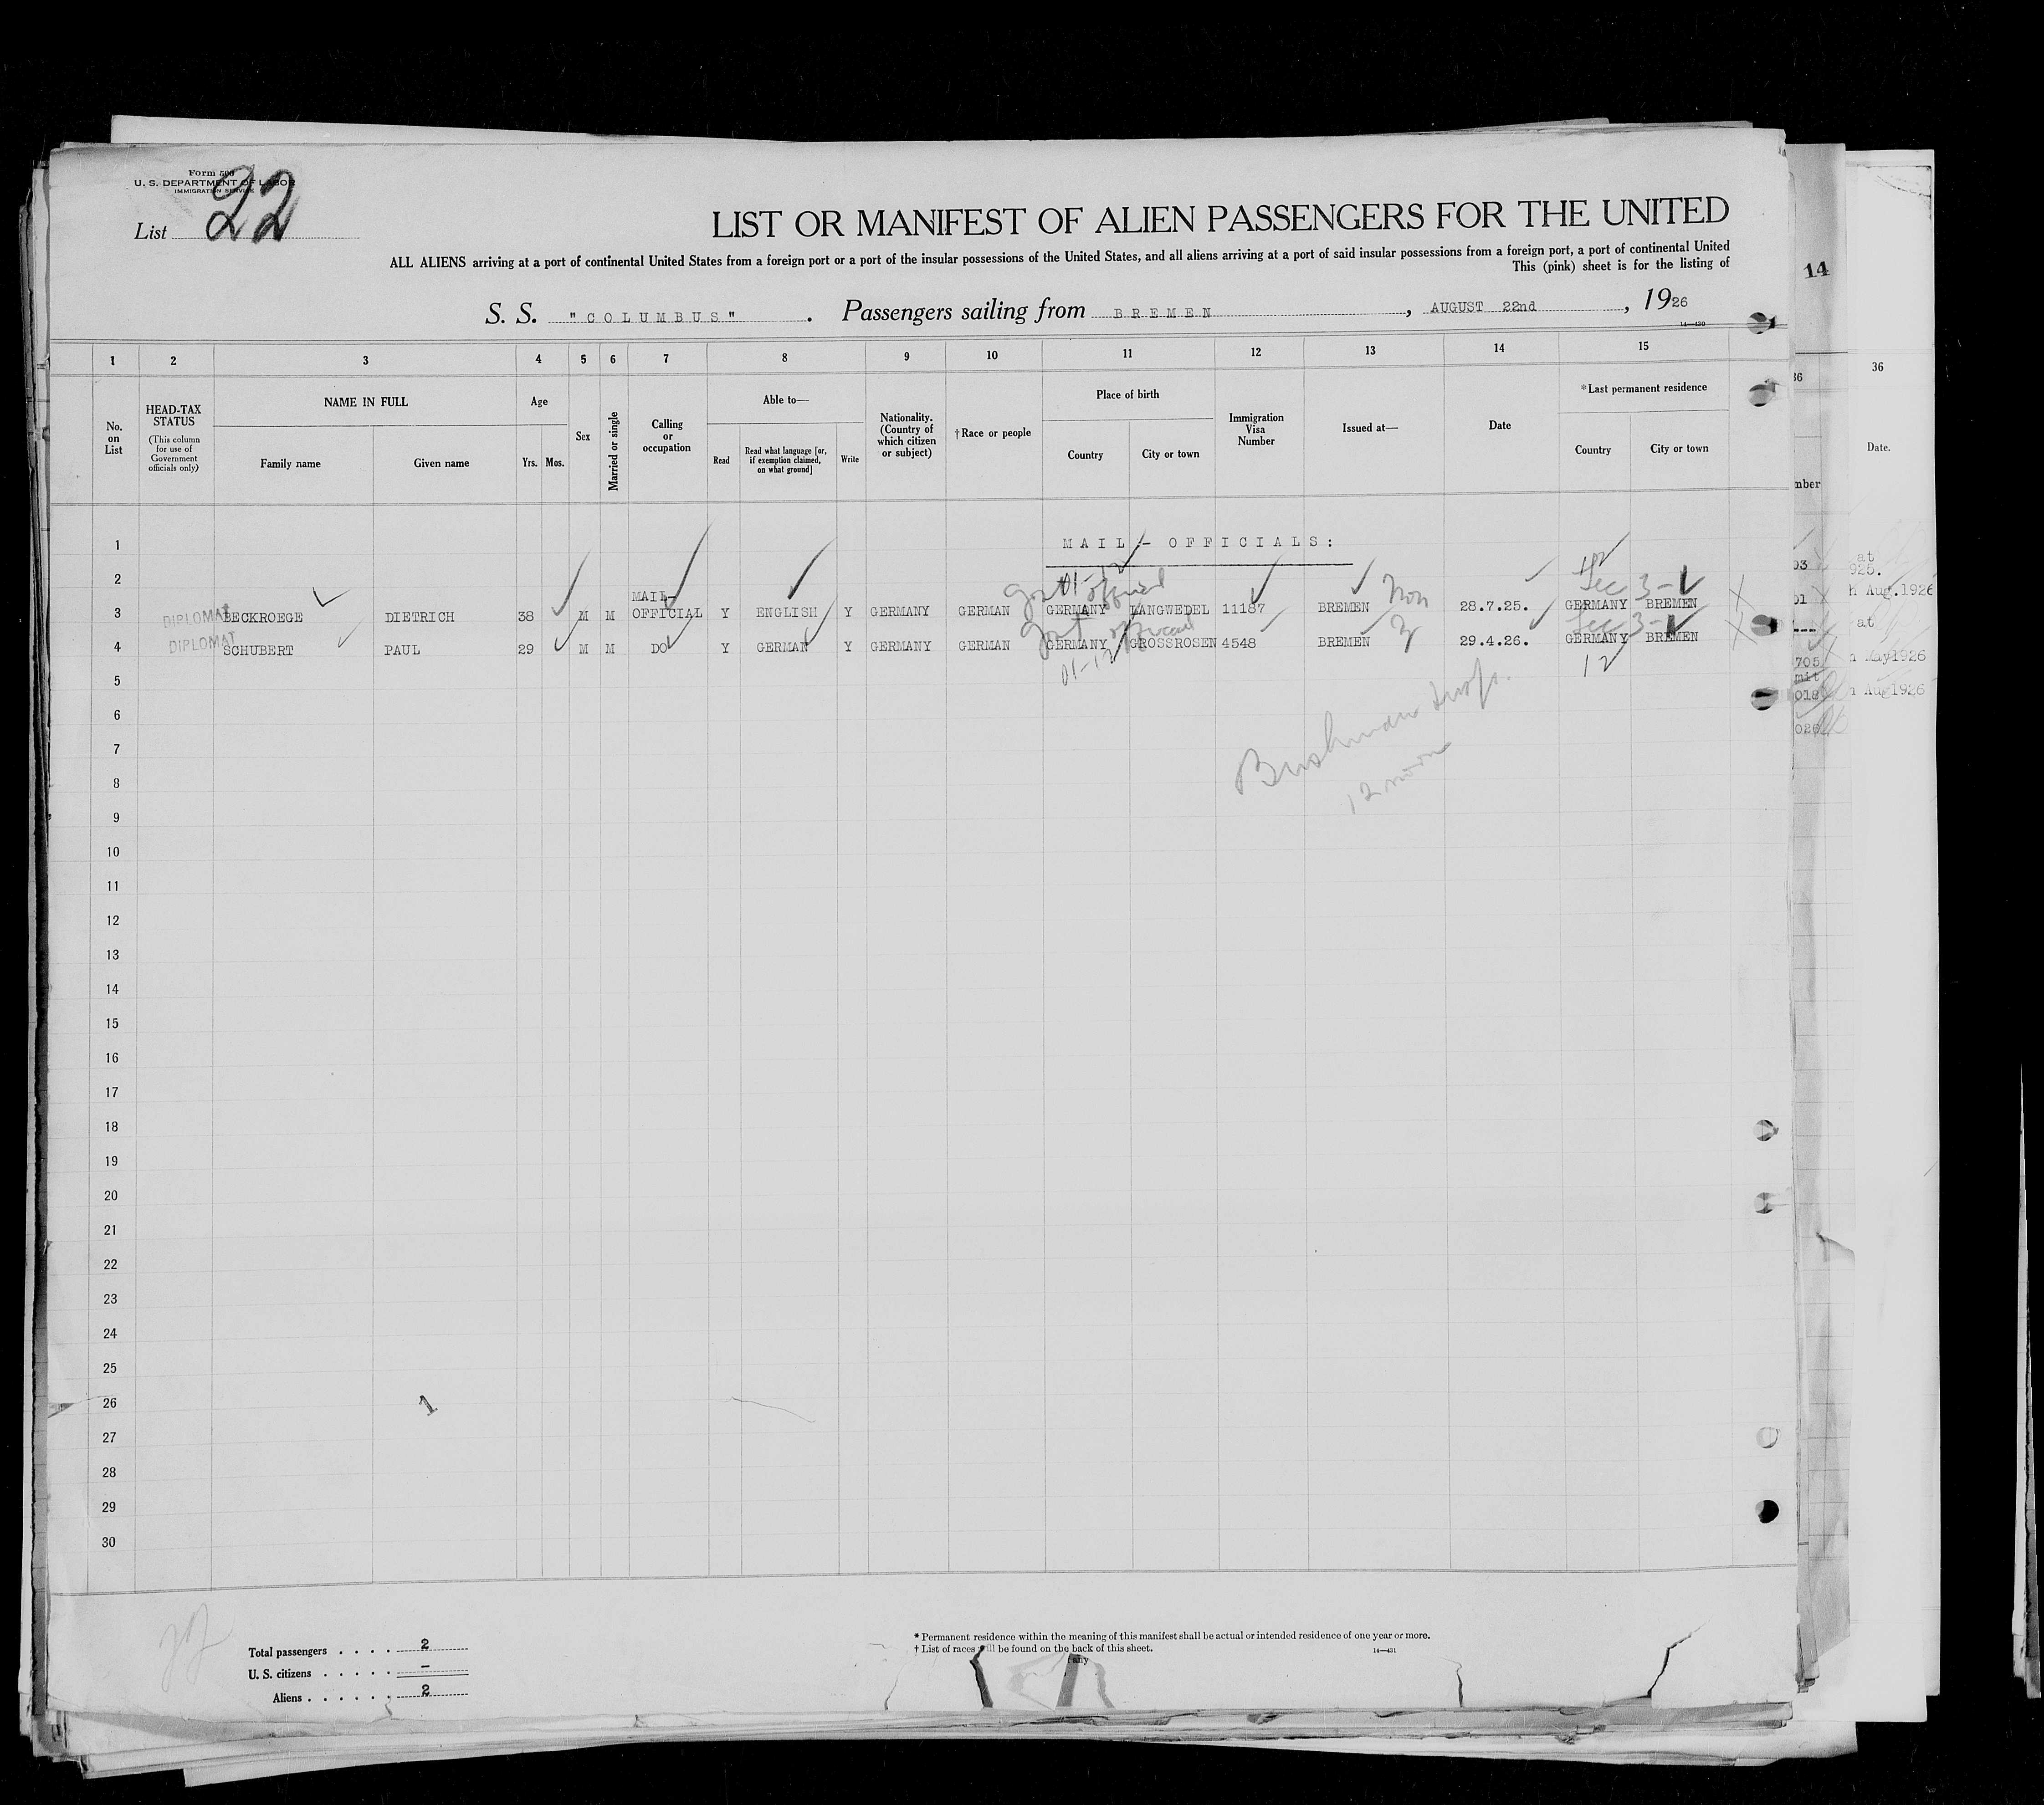 Form 500
U. S. DEPARTMENT OF LABOR
IMMIGRATION SERVICE
List 22
LIST OR MANIFEST OF ALIEN PASSENGERS FOR THE UNITED
ALL ALIENS arriving at a port of continental United States from a foreign port or a port of the insular possessions of the United States, and all aliens arriving at a port of said insular possessions from a foreign port, a port of continental United
This (pink) sheet is for the listing of
14
S. S. "COLUMBUS". Passengers sailing from BREMEN, AUGUST 22nd, 1926
14—430
1 2 3 4 5 6 7 8 9 10 11 12 13 14 15
36 36
No. on List
HEAD-TAX STATUS
(This column for use of Government officials only)
NAME IN FULL
Family name Given name
Age
Yrs. Mos.
Sex
Married or single
Calling or occupation
Able to—
Read
Read what language [or, if exemption claimed, on what ground]
Write
Nationality. (Country of which citizen or subject)
†Race or people
Place of birth
Country City or town
Immigration Visa Number
Issued at—
Date
*Last permanent residence
Country City or town
Date.
mber
1 MAIL - OFFICIALS:
2
01-12
Govt official
Sec 3-1
3 DIPLOMAT BECKROEGE DIETRICH 38 M M MAIL-OFFICIAL Y ENGLISH Y GERMANY GERMAN GERMANY LANGWEDEL 11187 BREMEN Non 28.7.25. GERMANY BREMEN
Govt official
Sec 3-1
4 DIPLOMAT SCHUBERT PAUL 29 M M DO Y GERMAN Y GERMANY GERMAN GERMANY GROSSROSEN 4548 BREMEN 29.4.26. GERMANY BREMEN
01-12
12
5
6
7
8
9
10
11
12
13
14
15
16
17
18
19
20
21
22
23
24
25
26
27
28
29
30
Bushman Insp.
12 noon
at
925.
h Aug.1926
at
n May1926
n Aug1926
03
01
705
mit
018
026
1
Total passengers . . . . 2
U. S. citizens . . . . . . –
Aliens . . . . . . 2
* Permanent residence within the meaning of this manifest shall be actual or intended residence of one year or more.
† List of races will be found on the back of this sheet.
14—431
any